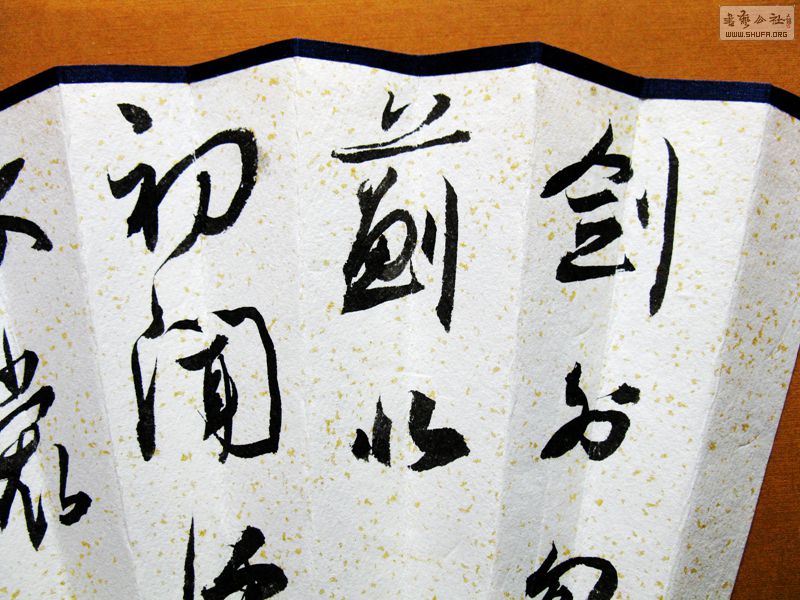 剑外忽
蓟北
初闻涕
裳
書藝公社
WWW.SHUFA.ORG